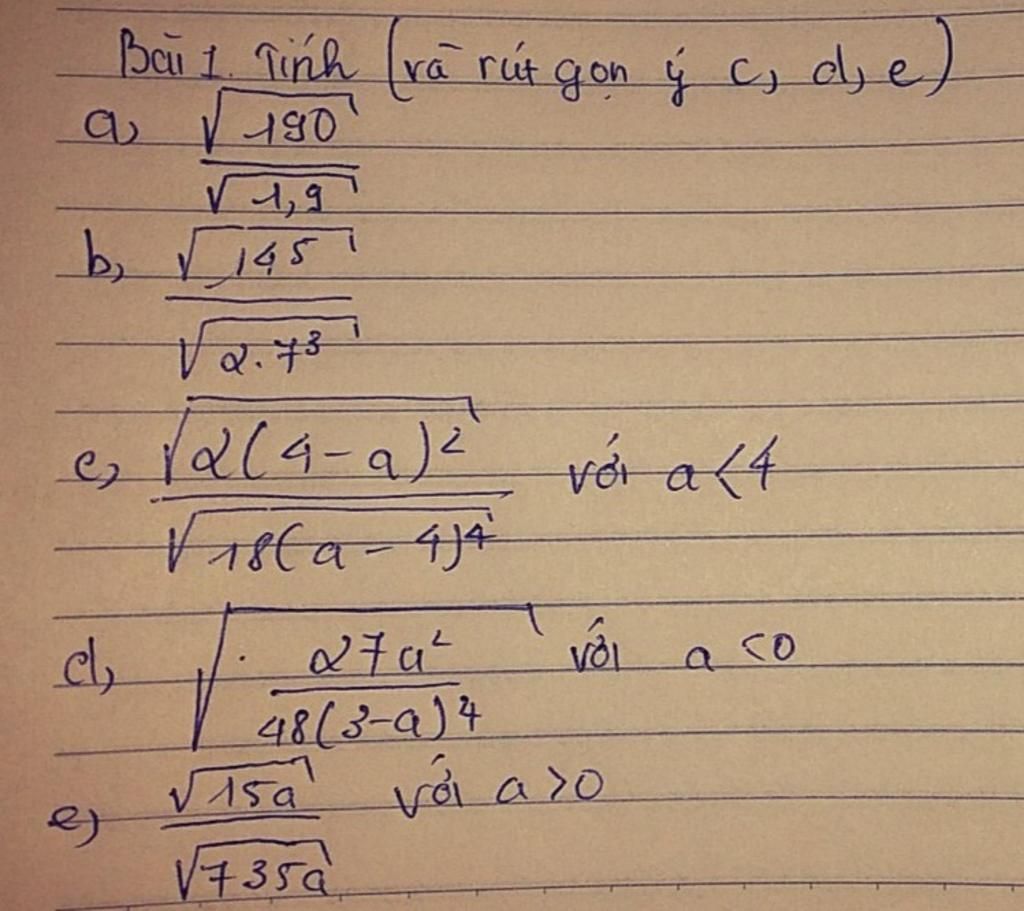 Bài 1. Tính (và rút gọn ý c, d, e)
a, √190 / √1,9
b, √145 / √2.7³
c, √2(4-a)² / √18(a-4)⁴ với a<4
d, √27a² / 48(3-a)⁴ với a<0
e, √15a / √735a với a>0